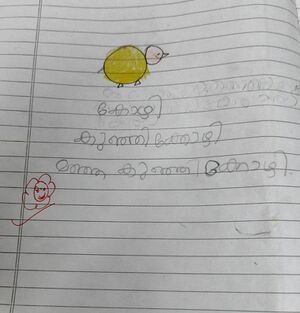 കോഴി
കുഞ്ഞിക്കോഴി
മഞ്ഞ കുഞ്ഞിക്കോഴി.